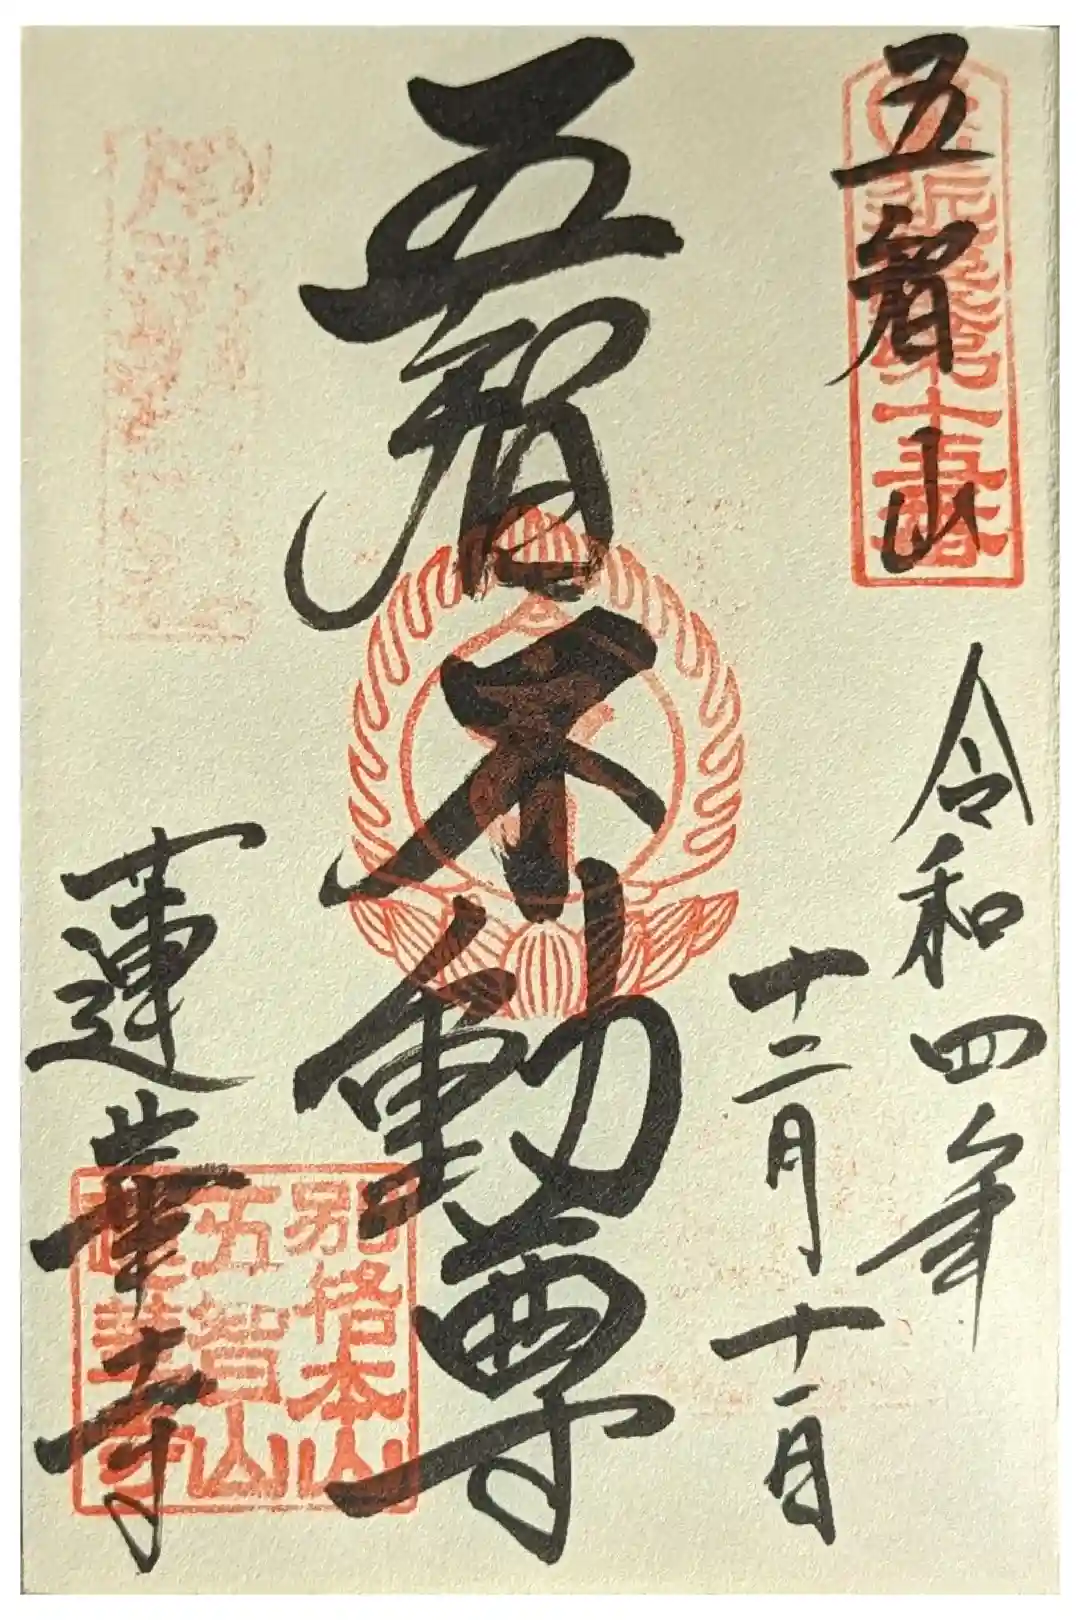 五智山
令和四年
十二月十一日
五智不動尊
蓮華寺
第十五番
別格本山
五智山
蓮華寺